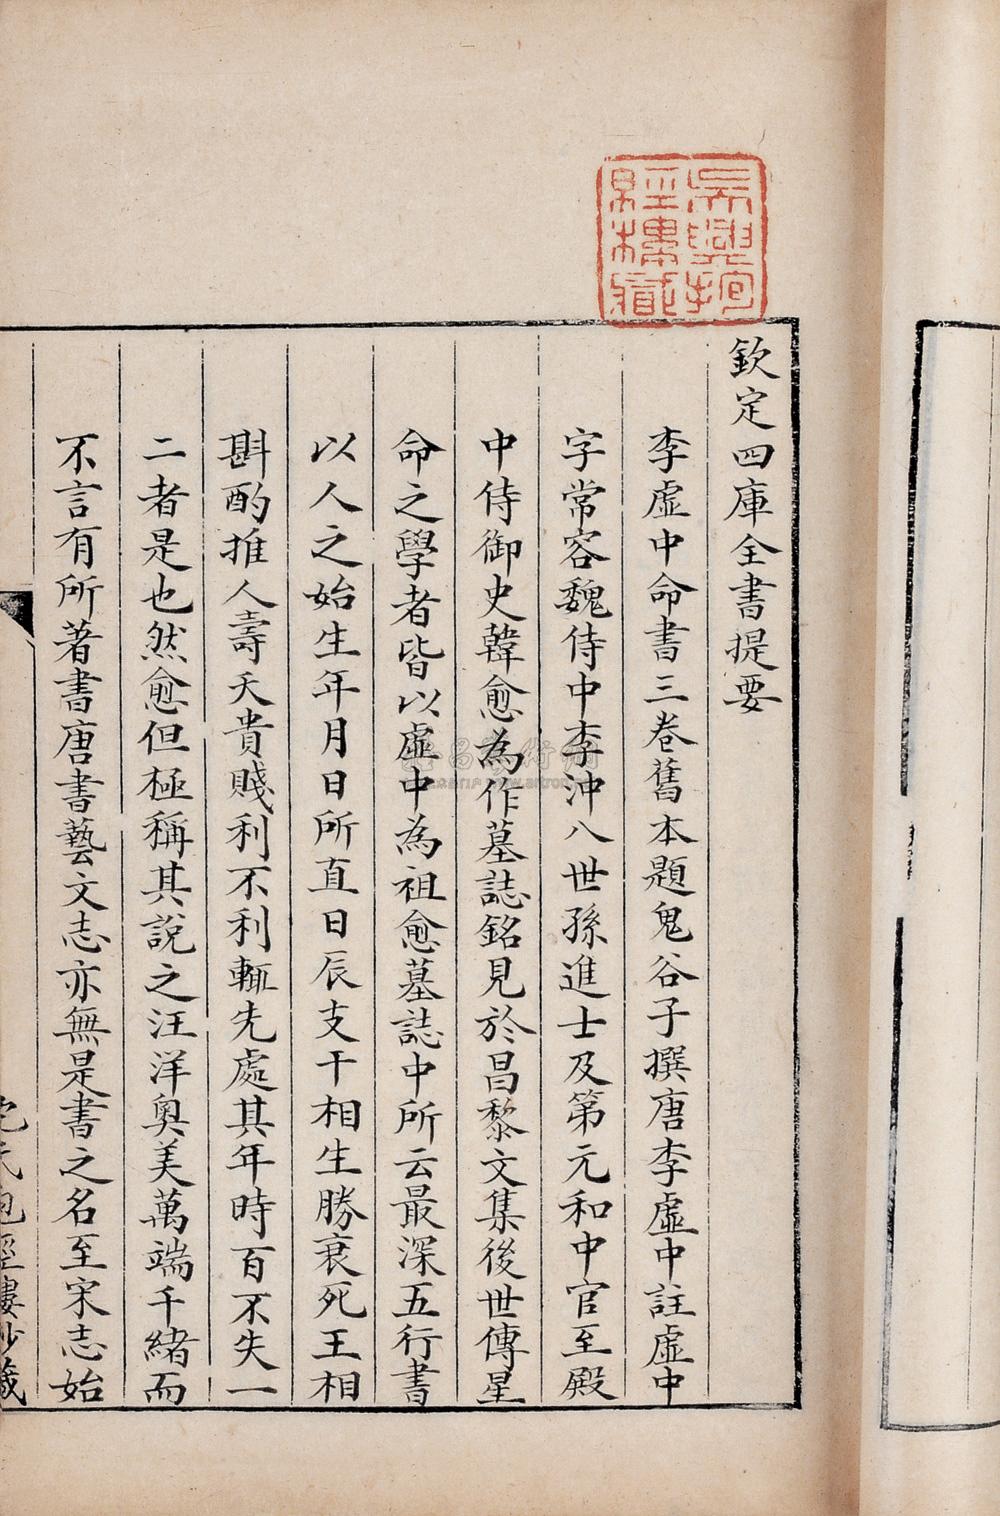 欽定四庫全書提要
李虛中命書三卷舊本題鬼谷子撰唐李虛中註虛中
字常容魏侍中李沖八世孫進士及第元和中官至殿
中侍御史韓愈為作墓誌銘見於昌黎文集後世傳星
命之學者皆以虛中為祖愈墓誌中所云最深五行書
以人之始生年月日所直日辰支干相生勝衰死王相
斟酌推人壽夭貴賤利不利輒先處其年時百不失一
二者是也然愈但極稱其說之汪洋奧美萬端千緒而
不言有所著書唐書藝文志亦無是書之名至宋志始
氏抱經樓抄藏
吳興抱經樓藏